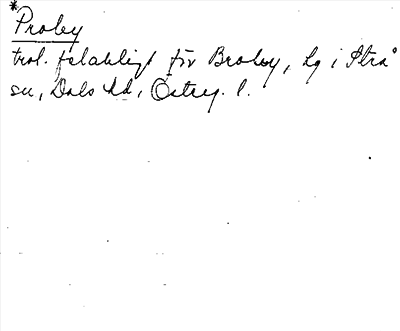 *Proby
trol. felaktigt för Broby, lg i Strå
sn, Dals hd, Österg. l.